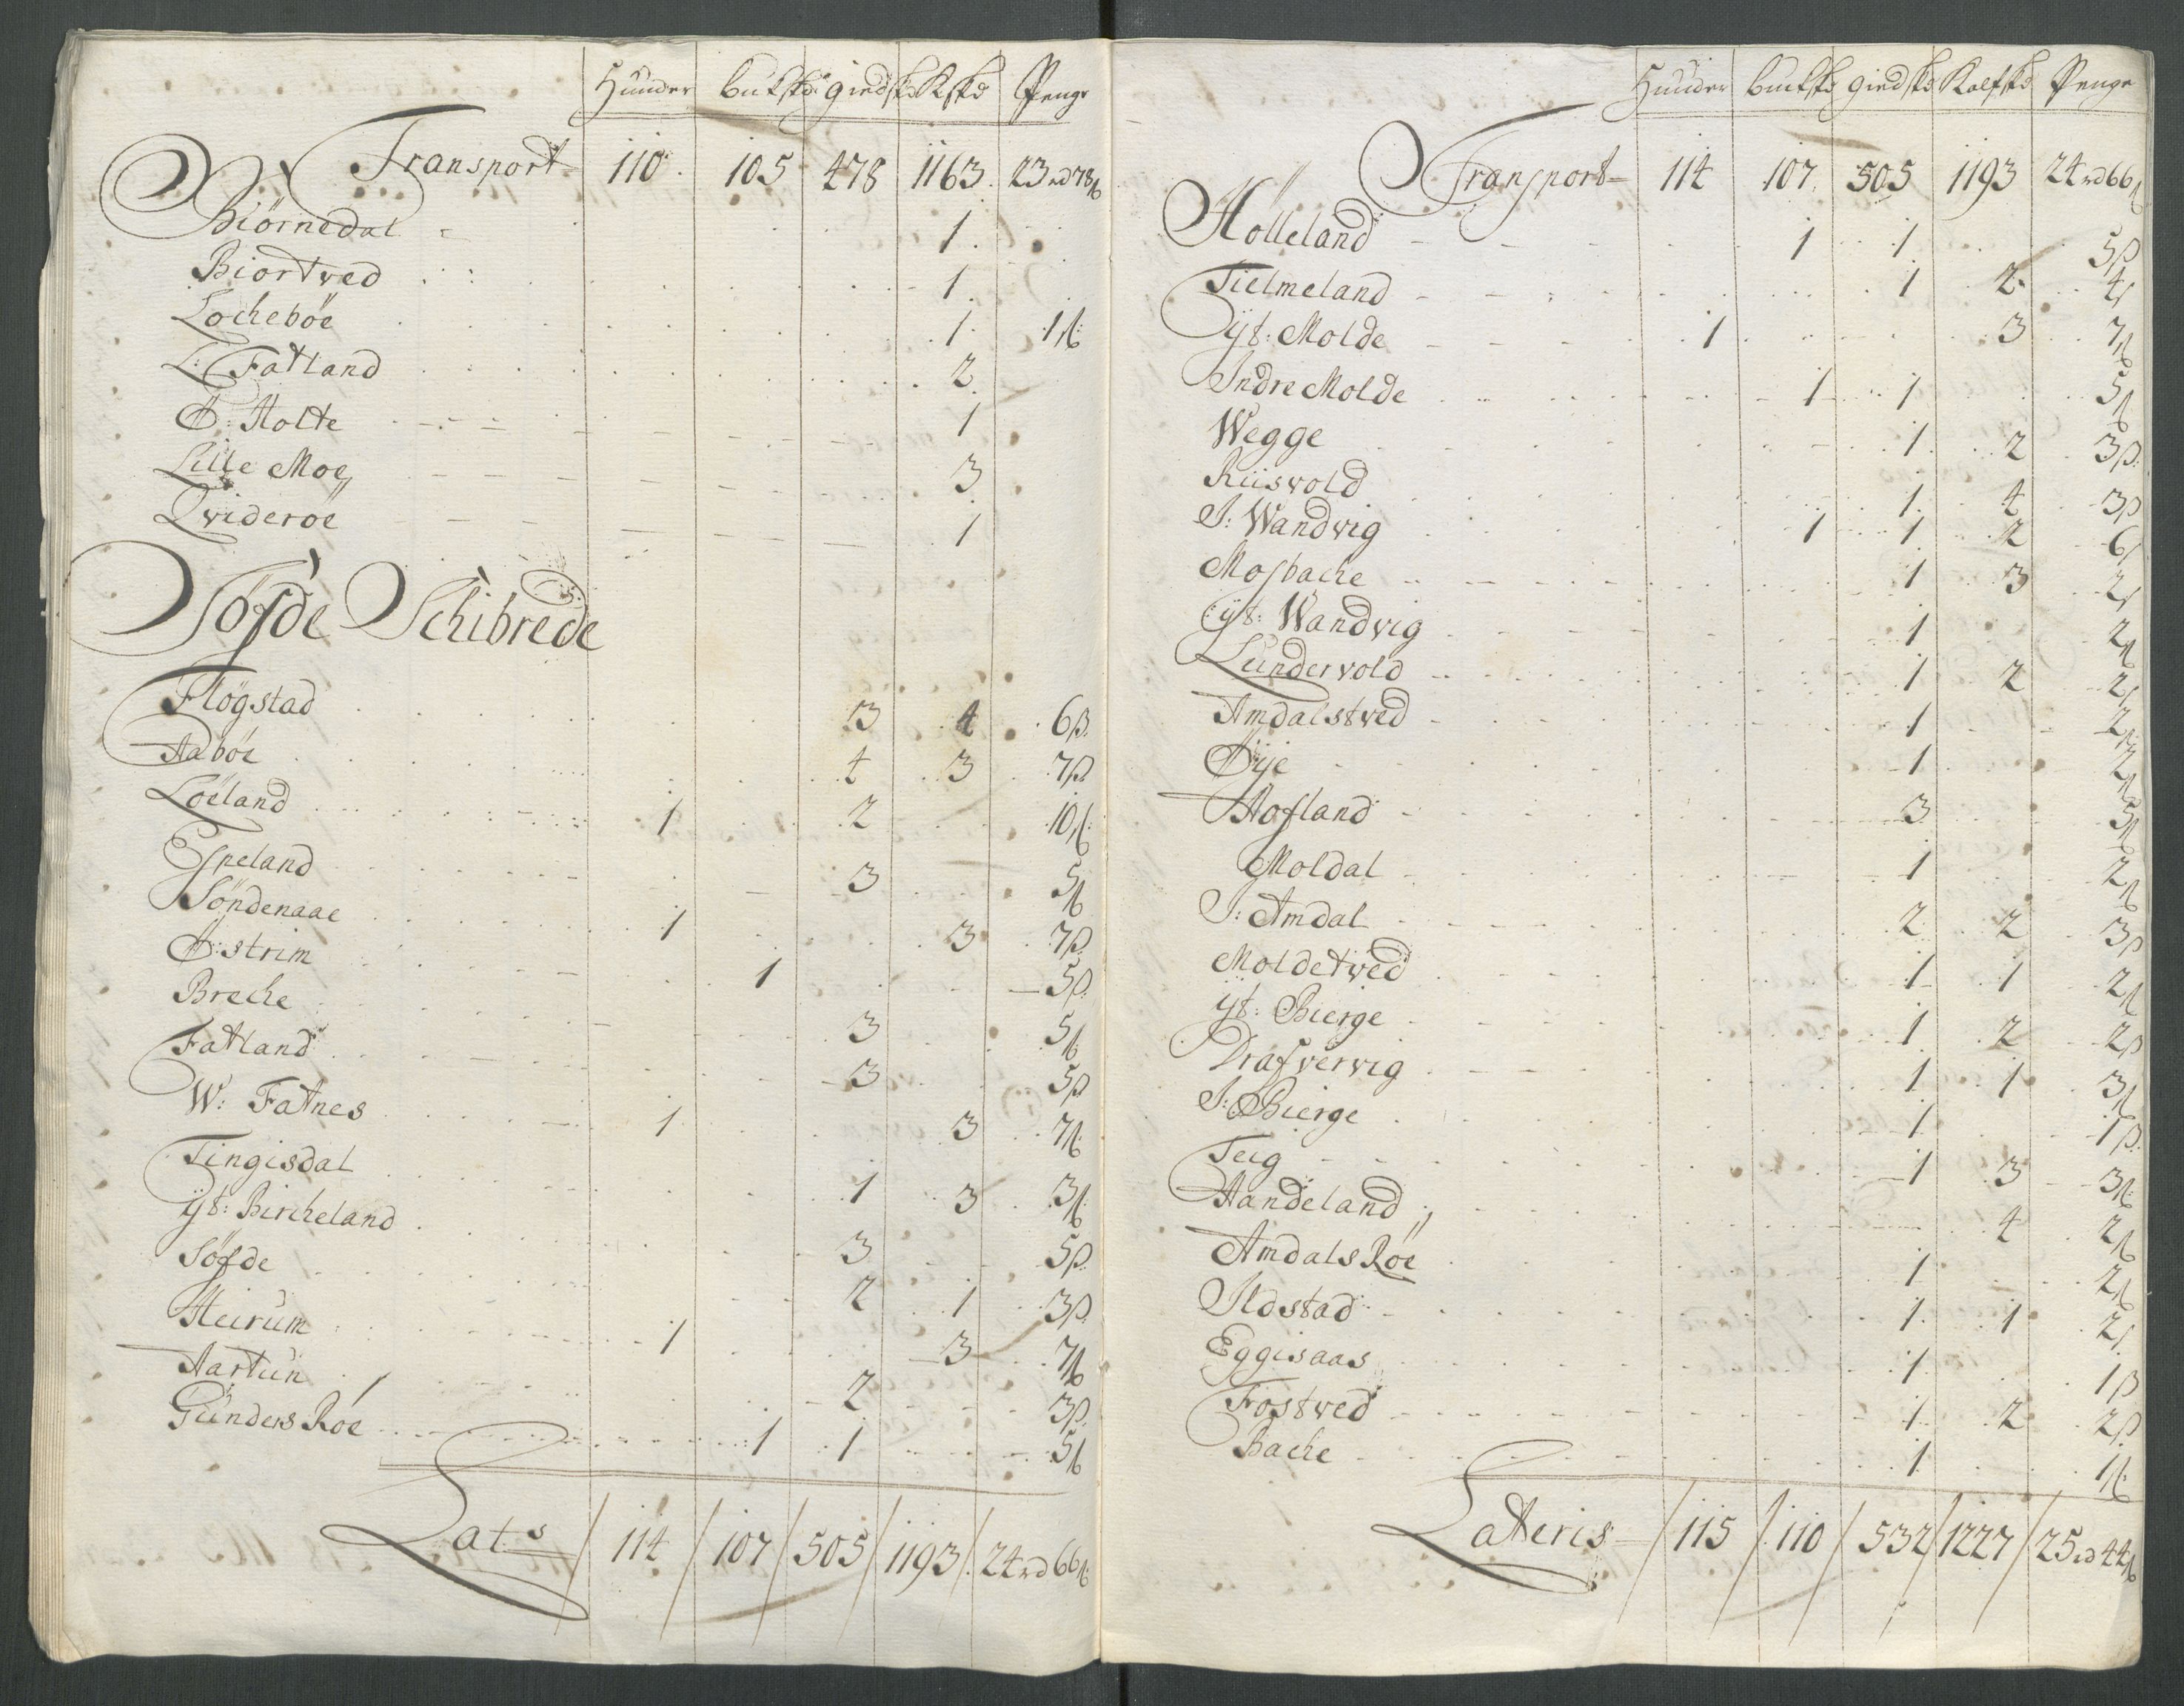 Huuder Bukskd giedskd Kskd Penge
Transport 110 105 478 1163 23 rd 78 ß
Biörnedal 1
Biortved 1
Locheböe 1 1 ß
L: Fatland 2
Ö: Holte 1
Lille Moe 3
Qvideröe 1
Söfde Schibrede
Flögstad 3 4 6 ß
Aaböe 4 3 7 ß
Löeland 1 2 10 ß
Espeland 3 5 ß
Söndenaae 1 3 7 ß
Ö: strim 1 5 ß
Breche 3 5 ß
Fatland 3 5 ß
W: Fatnes 1 3 7 ß
Tingisdal 1 3 3 ß
ÿt: Bircheland 3 5 ß
Söfde 2 1 3 ß
Heirum 1 3 7 ß
Aartun 2 3 ß
Gunders Röe 1 1 5 ß
Lats 114 107 505 1193 24 rd 66 ß
Huuder Buckskd giedskd Kalfskd Penge
Transport 114 107 505 1193 24 rd 66 ß
Hölleland 1 1 5 ß
Tielmeland 1 2 4 ß
ÿt: Molde 1 3 7 ß
Indre Molde 1 1 5 ß
Wegge 1 2 3 ß
Riisvold 1 4 3 ß
I: Wandvig 1 1 2 6 ß
Mosbache 1 3 2 ß
ÿt: Wandvig 1 2 ß
Lundervold 1 2 2 ß
Amdalstved 1 2 ß
Öÿe 1 2 ß
Hofland 3 5 ß
Moldal 1 2 ß
I: Amdal 2 2 3 ß
Moldetved 1 1 2 ß
ÿt: Bierge 1 2 2 ß
Drafvervig 1 1 3 ß
I: Bierge 1 1 ß
Teig 1 3 3 ß
Handeland 4 2 ß
Amdals Röe 1 2 ß
Ildstad 1 1 2 ß
Eggisaas 1 1 ß
Fostved 1 2 2 ß
Bache 1 1 ß
Latteris 115 110 532 1227 25 rd 44 ß